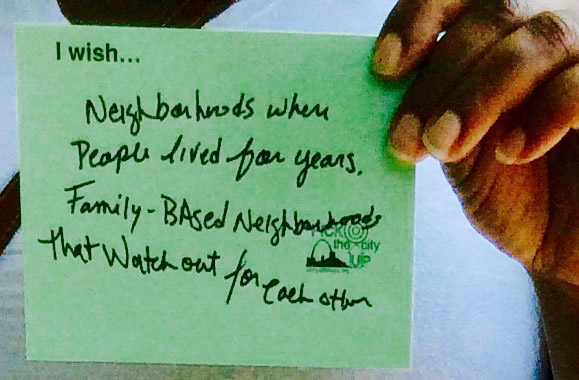 I wish...
Neighborhoods where
People lived for years.
Family-BAsed Neighborhoods
That Watch out for
each other
the city
UP